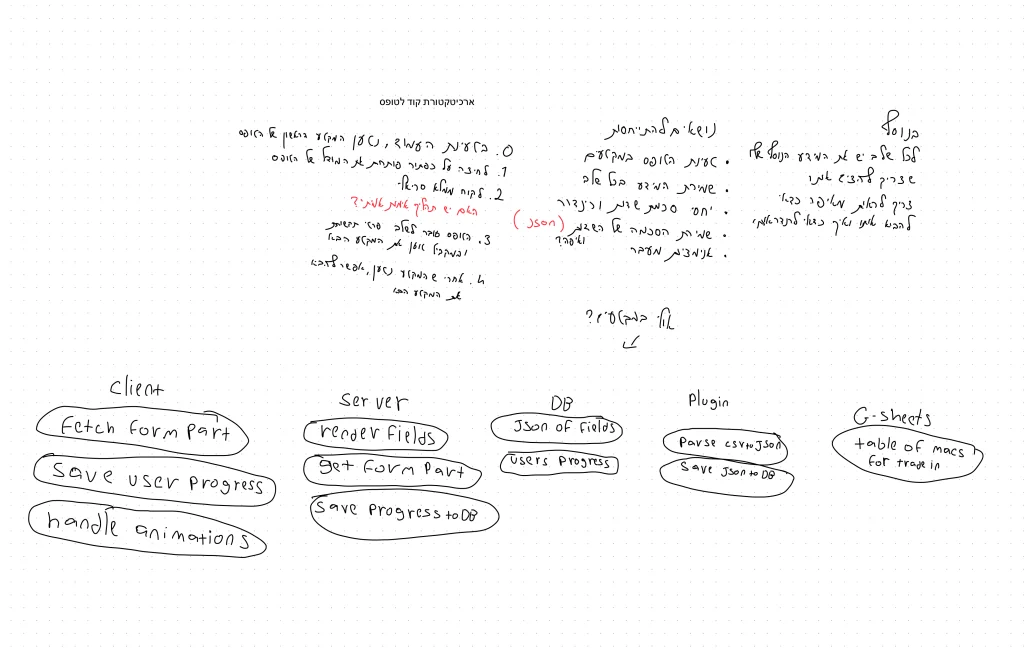 ארכיטקטורת קוד לטופס
בנוסף
לכל שלב יש את המידע הנוסף שלו
שצריך להציג אותו
צריך לראות מאיפה כדאי
להביא אותו ואיך כדאי
נושאים להתייחסות
• טעינת הטופס במקטעים
• שמירת המידע בכל שלב
• יחסי סכמת שדות ורינדור
• שמירת הסכמה של השדות (json)
ואיפה?
• אנימציות מעבר
0. בטעינת העמוד, נטען המקטע הראשון של הטופס
1. לחיצה על כפתור פותחת את המודל של הטופס
2. לקוח ממלא סריאלי
האם יש תהליך אימות אמיתי?
3. הטופס עובר לשלב
ובמקביל טוען את המקטע הבא
4. אחרי שהמקטע נטען, אפשר להביא
את המקטע הבא
אולי במקטעים?
Client
Fetch form part
Save user progress
handle animations
Server
render fields
get form part
Save progress to DB
DB
Json of fields
users progress
Plugin
Parse csv to Json
Save Json to DB
G-sheets
table of macs
for trade in